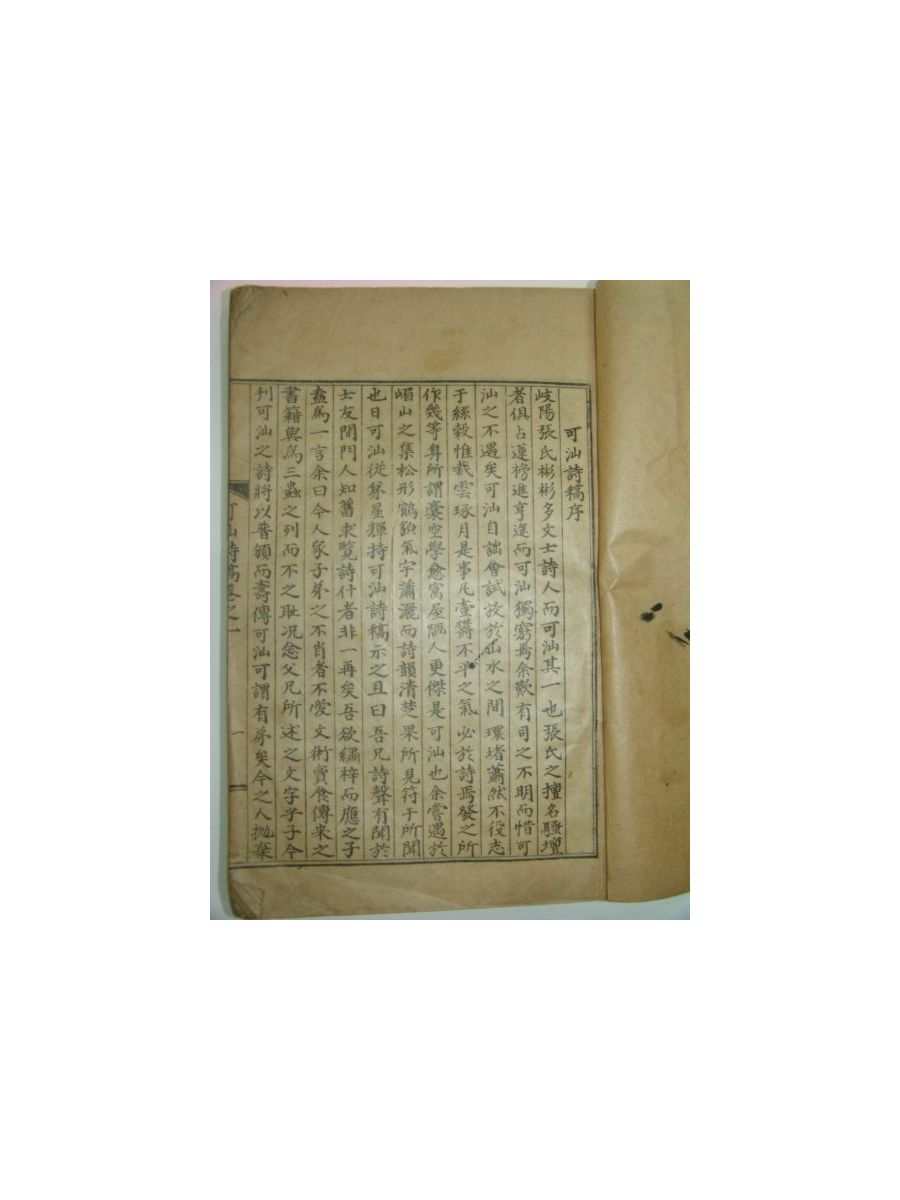 可汕詩稿序
歧陽張氏彬彬多文士詩人而可汕其一也張氏之擅名騷壇
者俱占蓮榜進亨逵而可汕獨窮焉余歎有司之不明而惜可
汕之不遇矣可汕自詘會試放於山水之間環堵蕭然不役志
于絲穀惟裁雲琢月是事凡壹欝不平之氣必於詩焉發之所
作幾等身所謂囊空學愈富屋陋人更傑是可汕也余嘗遇於
嵋山之集松形鶴貌氣宇蕭灑而詩韻清楚果所見符于所聞
也日可汕從弟星輝持可汕詩稿示之且曰吾兄詩聲有聞於
士友間門人知舊求覽詩什者非一再矣吾欲繡梓而應之子
盍爲一言余曰今人家子弟之不肖者不愛文術賣食傳來之
書籍與爲三蟲之列而不之耻况念父兄所述之文字乎子今
刊可汕之詩將以普頒而壽傳可汕可謂有弟矣今之人抛棄
可汕詩稿卷之一
一